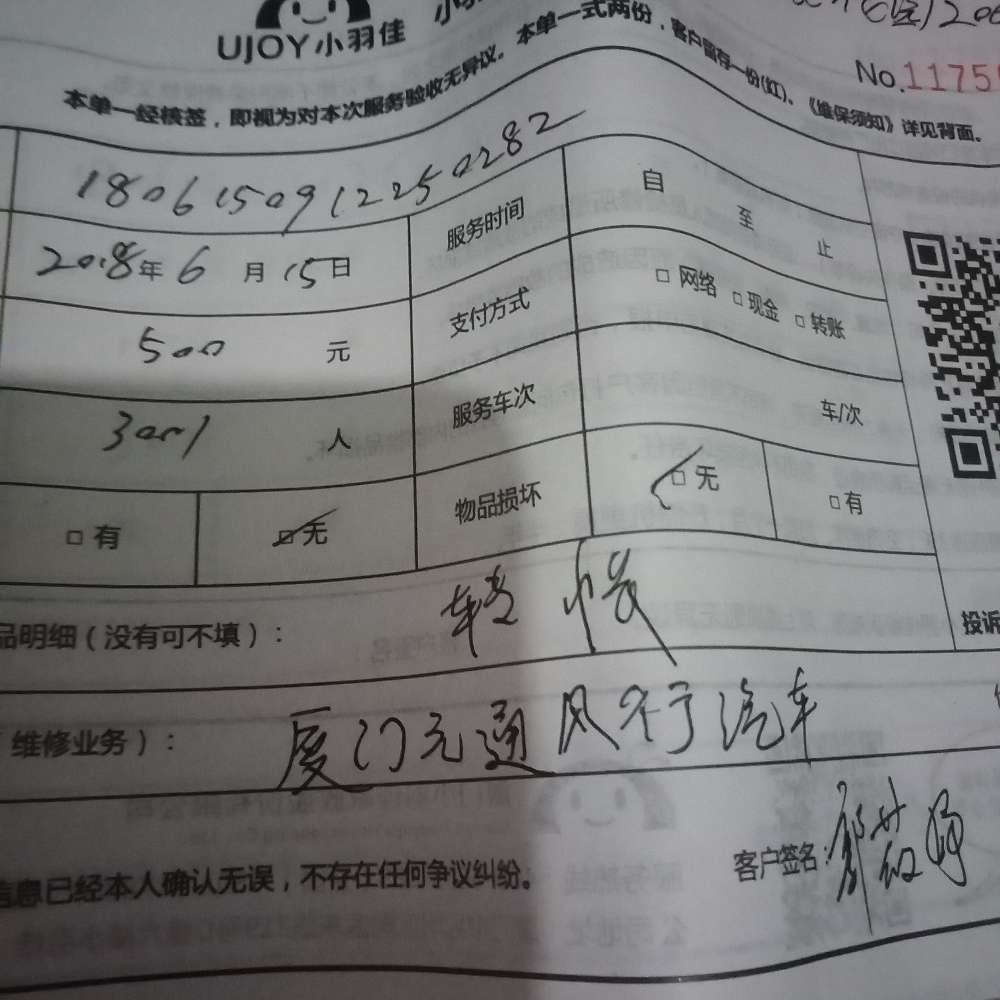 UJOY小羽佳 小
No.1175
本单一经核签，即视为对本次服务验收无异议。本单一式两份，客户留存一份(红)、《维保须知》详见背面。
1806150912250282
2018年6月15日 服务时间 自 至 止
500 元 支付方式 □ 网络 □ 现金 □ 转账
人 服务车次 车/次
□ 有 □ 无 物品损坏 □ 无 □ 有
品明细（没有可不填）：
投诉
维修业务）： 厦门元通风行汽车
信息已经本人确认无误，不存在任何争议纠纷。 客户签名: